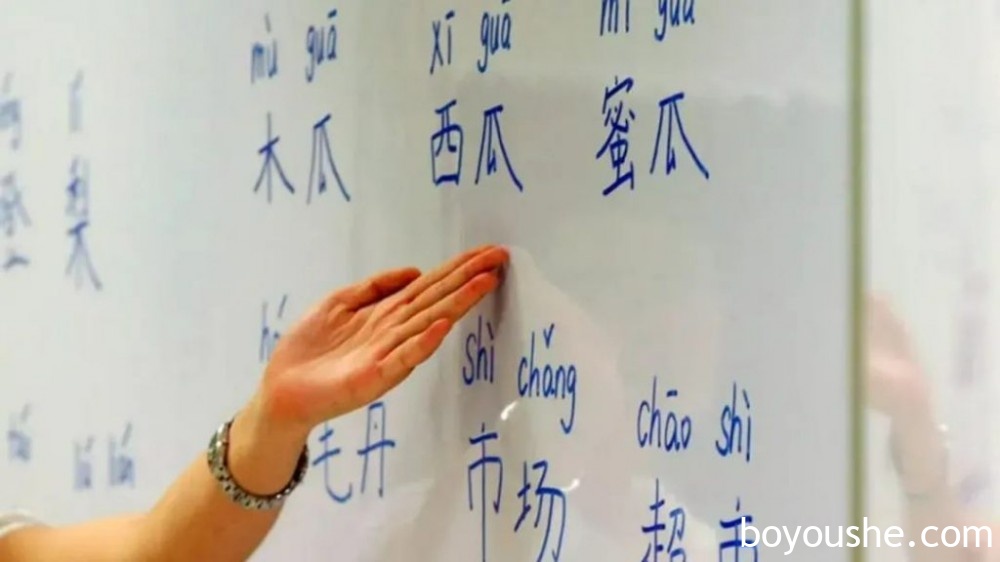 mù guā xī guā mì guā
木瓜 西瓜 蜜瓜
梨
shì chǎng
毛丹 市场
chāo shì
超市
liú lián
boyoushe.com